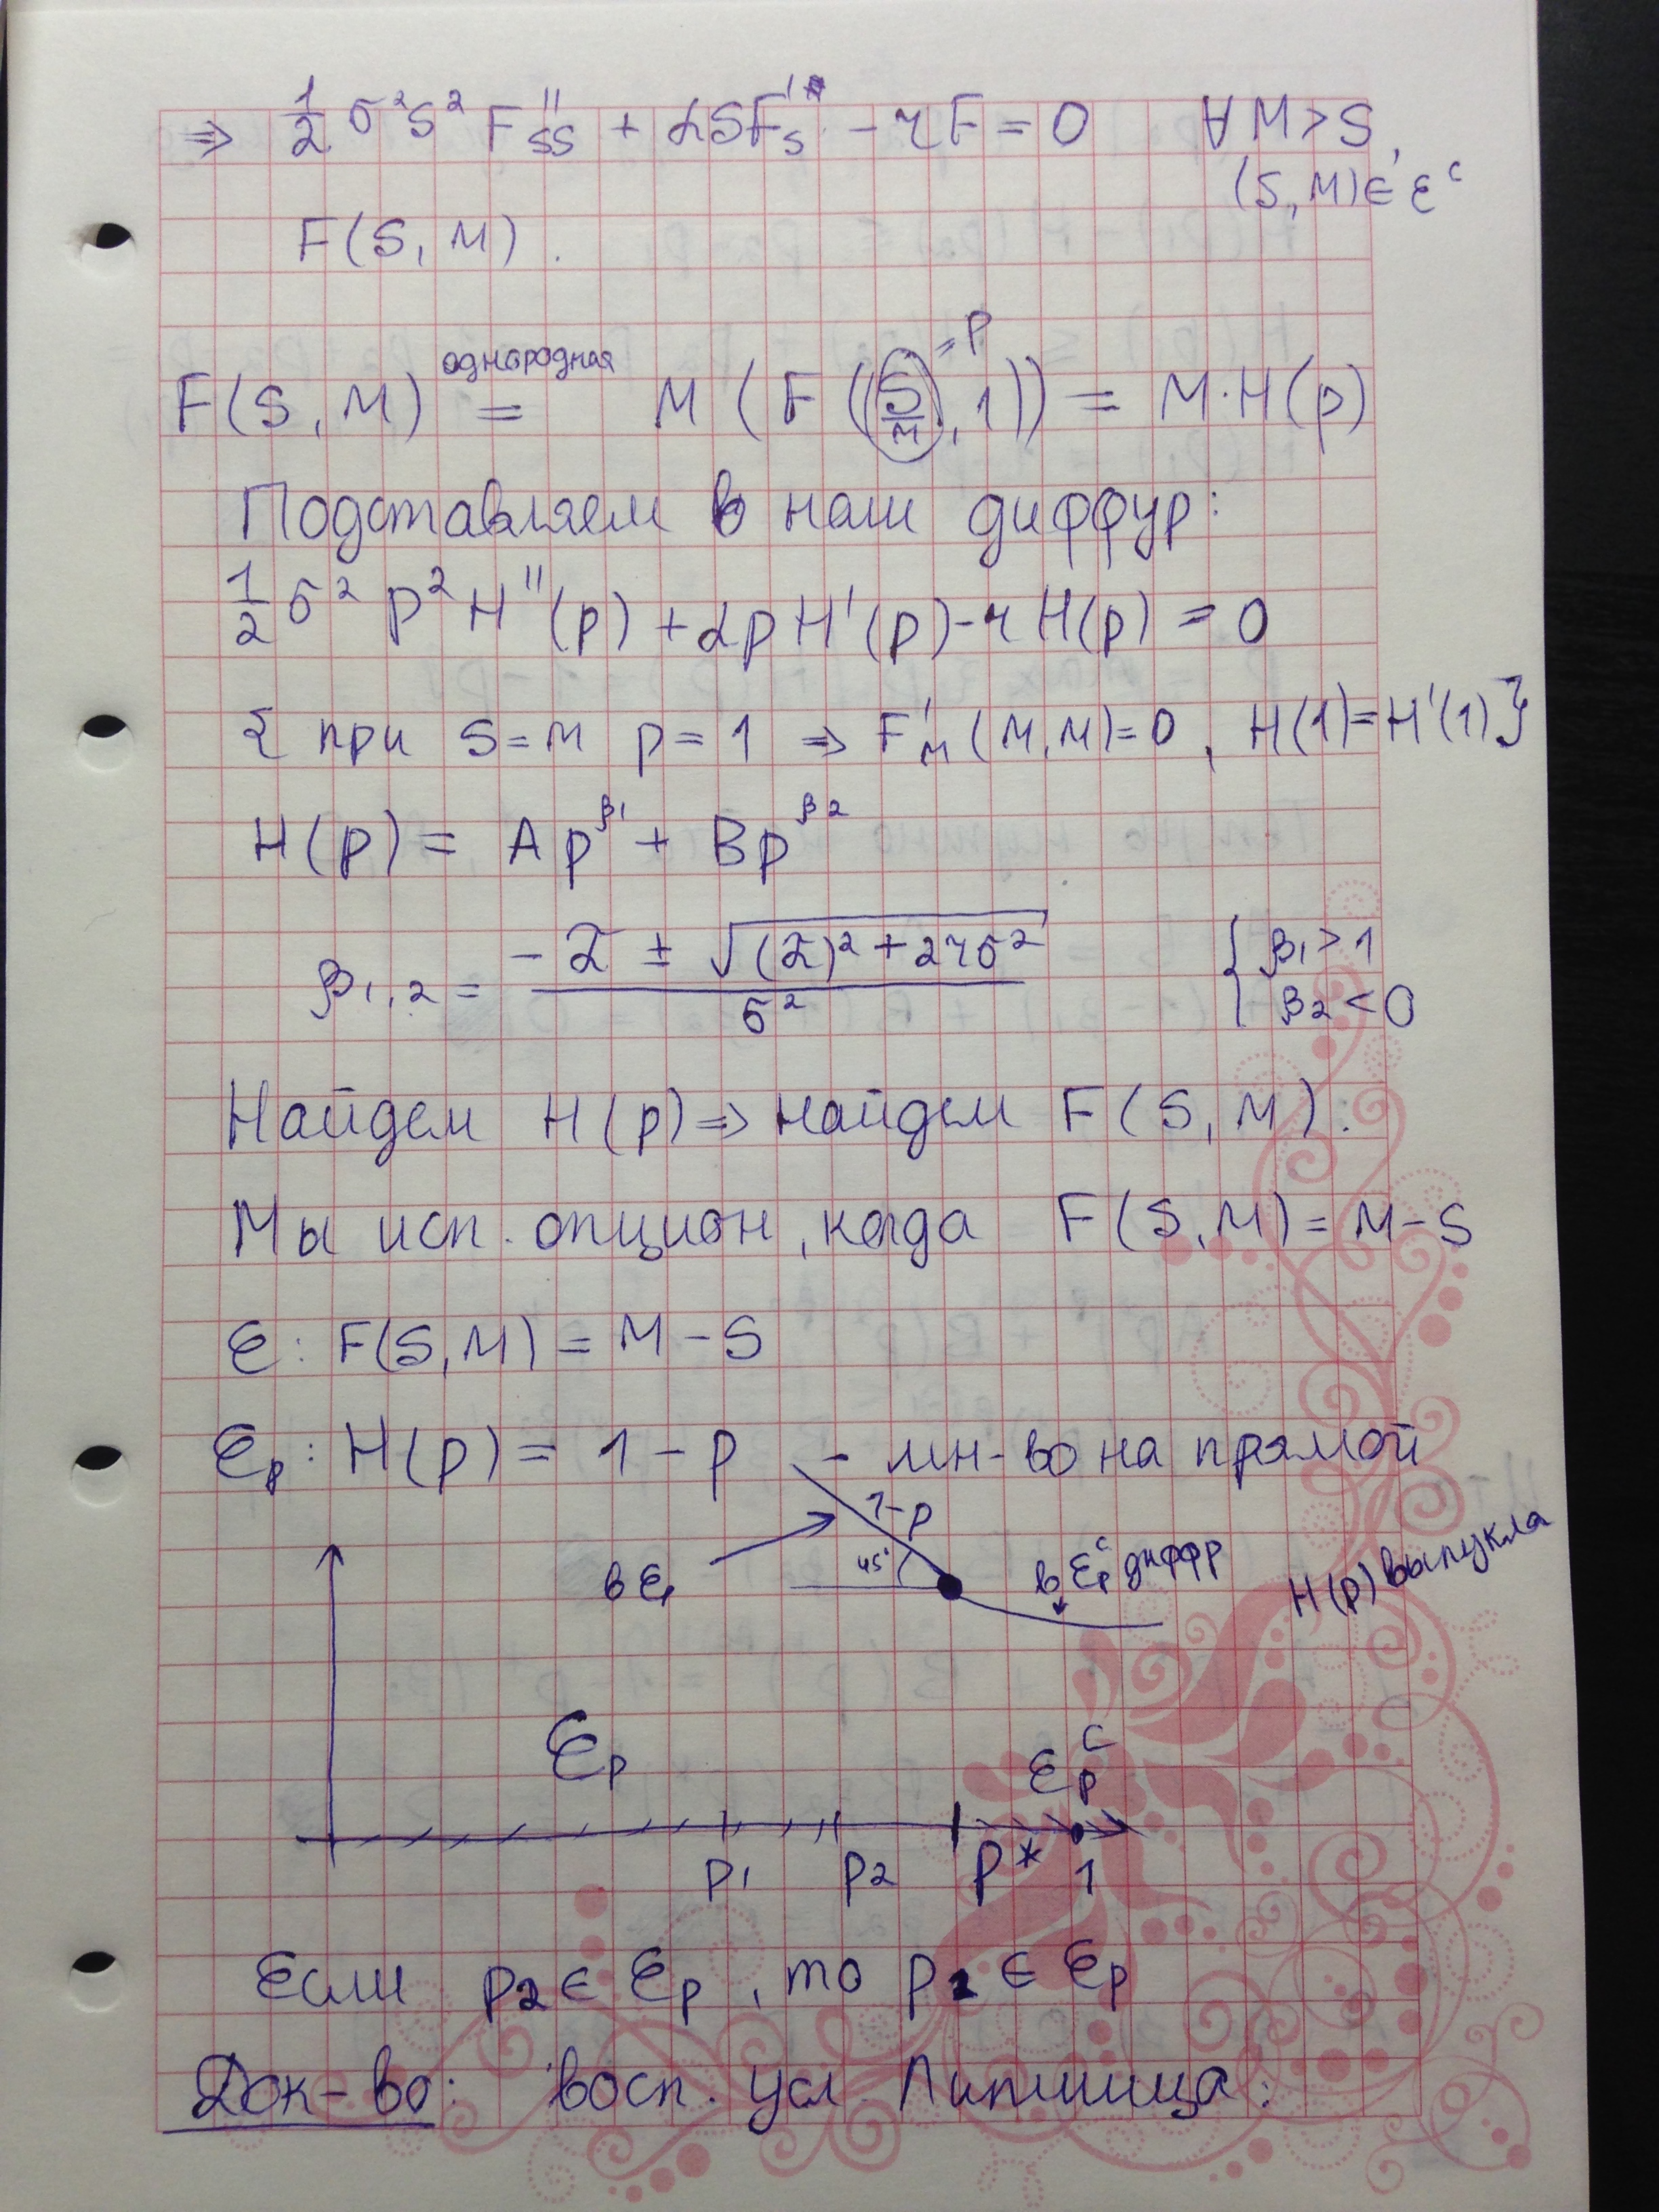 ⇒ 1/2 σ²S² F''_SS + αSF'_S − rF = 0 ∀ M > S,
(S, M) ∈ ε^c
F(S, M).
однородная = p
F(S, M) = M (F(S/M, 1)) = M·H(p)
Подставляем в наш диффур:
1/2 σ² p² H''(p) + αpH'(p) − rH(p) = 0
{ при S = M p = 1 ⇒ F'_M (M, M) = 0, H(1) = H'(1) }
H(p) = Ap^β1 + Bp^β2
β1,2 = (−α̃ ± √((α̃)² + 2rσ²)) / σ² { β1 > 1
β2 < 0
Найдем H(p) ⇒ найдем F(S, M):
Мы исп. опцион, когда F(S, M) = M − S
ε: F(S, M) = M − S
ε_p: H(p) = 1 − p – мн-во на прямой
1−p
в ε_p 45° в ε_p^c диффр H(p) выпукла
ε_p ε_p^c
p1 p2 p* 1
Если p2 ∈ ε_p, то p1 ∈ ε_p
Док-во: восп. усл. Липшица: